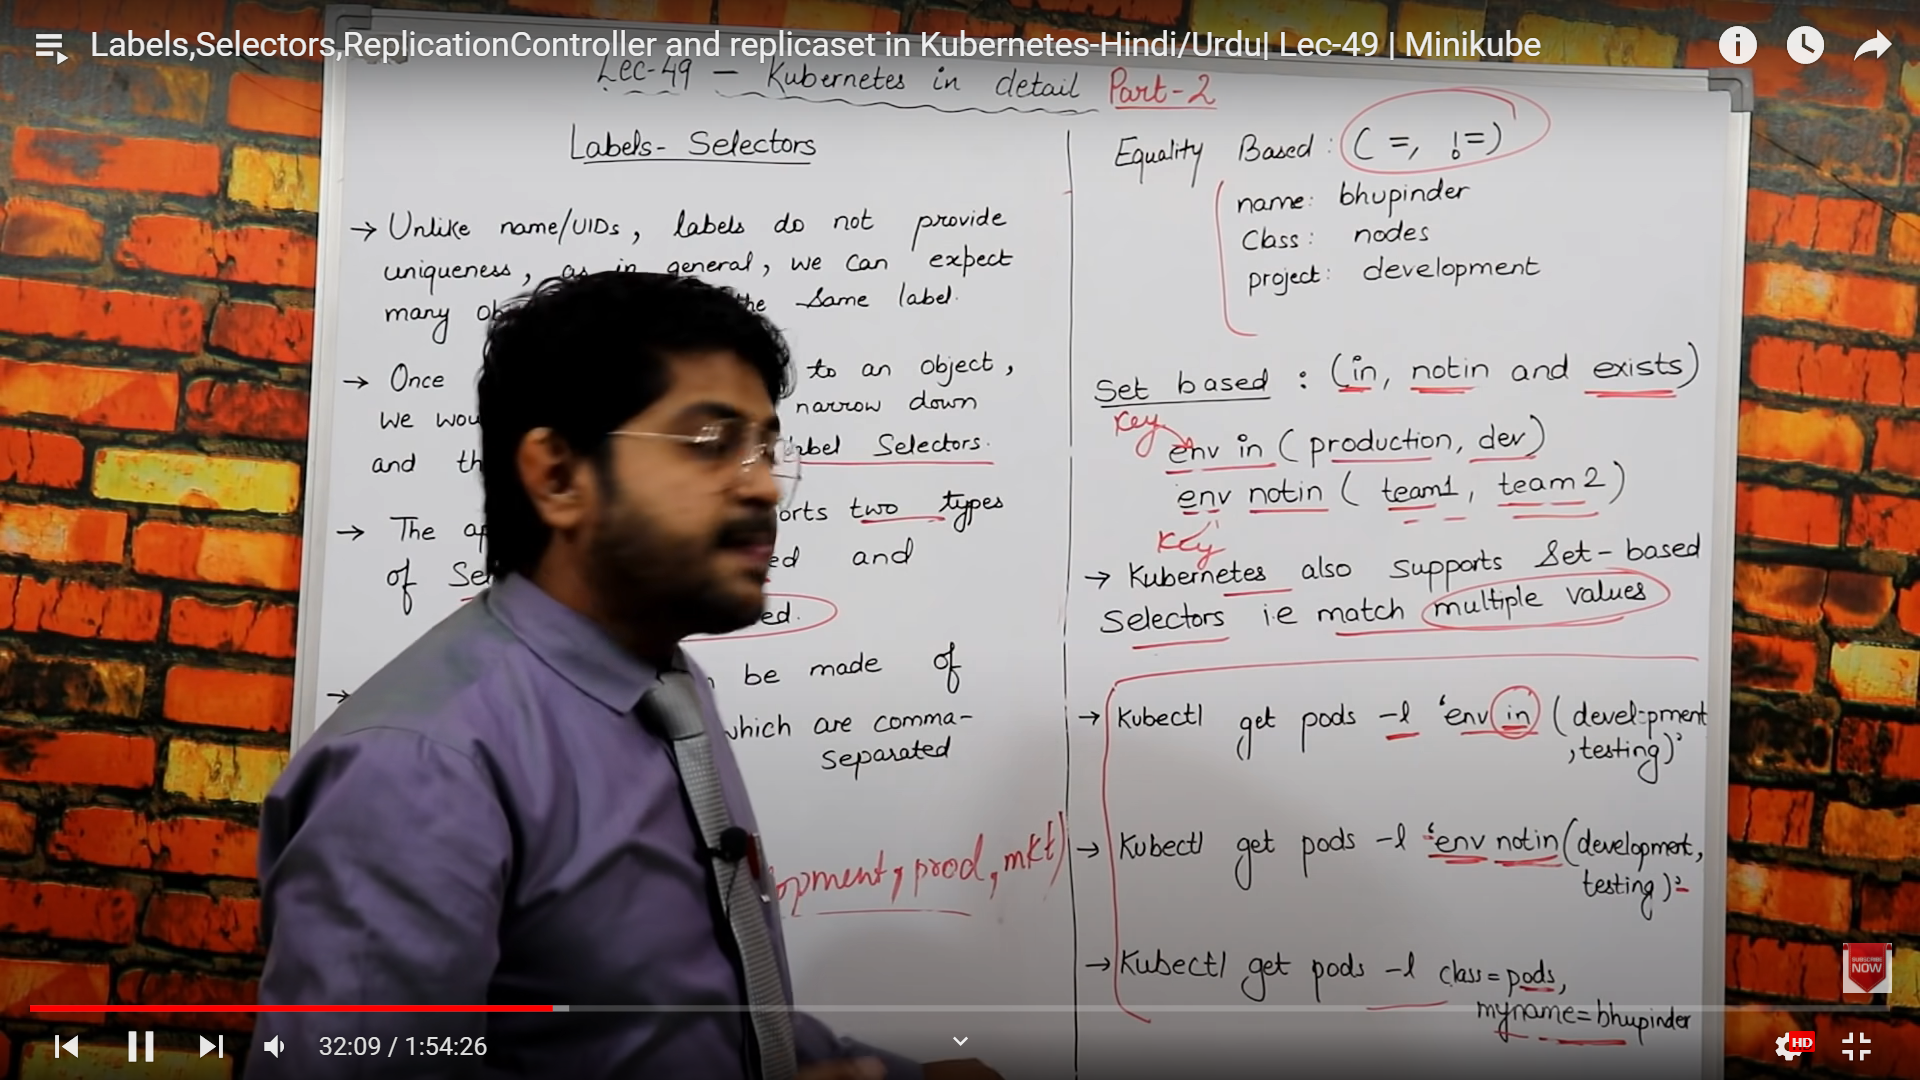 Labels,Selectors,ReplicationController and replicaset in Kubernetes-Hindi/Urdu| Lec-49 | Minikube
Lec-49 — Kubernetes in detail Part-2
Labels- Selectors
→ Unlike name/UIDs, labels do not provide
uniqueness, as in general, we can expect
many the same label.
→ Once to an object,
we narrow down
and label Selectors.
→ The two types
of and
be made of
which are comma-
separated
prod, mkt)
Equality Based : ( =, !=)
name: bhupinder
Class: nodes
project: development
Set based : (in, notin and exists)
Key
env in ( production, dev)
env notin ( team1, team2)
Key
→ Kubernetes also supports Set-based
Selectors i.e match multiple values
→ Kubectl get pods -l 'env in ( development
,testing)'
→ Kubectl get pods -l 'env notin (development,
testing)'
→ Kubectl get pods -l class=pods,
myname=bhupinder
SUBSCRIBE
NOW
32:09 / 1:54:26
HD